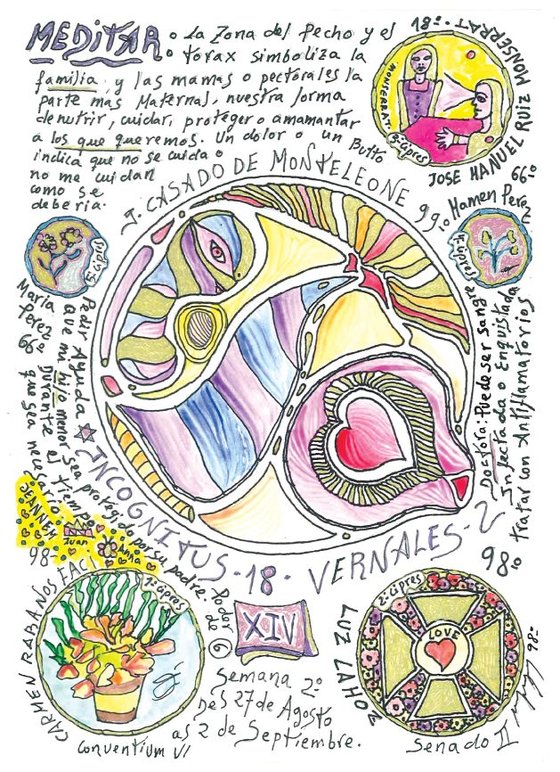 MEDITAR: la zona del Pecho y el
torax simboliza la
familia y las mamas o pectorales la
parte mas Maternal, nuestra forma
de nutrir, cuidar, proteger o amamantar
a los que queremos. Un dolor o un Bulto
indica que no se cuida o
no me cuidan
como se
deberia.
18º
MONSERRAT.
2º cipres
JOSE MANUEL RUIZ MONSERRAT
66º
J. CASADO DE MONTELEONE 99º
Mamen Perez
1º cipres
Maria
Perez
66º
Pedir Ayuda
que mi hijo menor sea protegido por su padre.
Durante el tiempo
que sea necesa
Doctora: Puede ser Sangre
Infectada o Enquistada
tratar con Antiflamatorios
INCOGNITUS · 18 · VERNALES - 2
JEANNETT
Juan
Anna
98º
98º
CARMEN RADA NOS FACI
1º cipres
Conventium VI
Poder
de 6
XIV
Semana 2º
Des 27 de Agosto
as 2 de Septiembre.
LUZ LAHOZ
2º cipres
LOVE
98º
Senado II